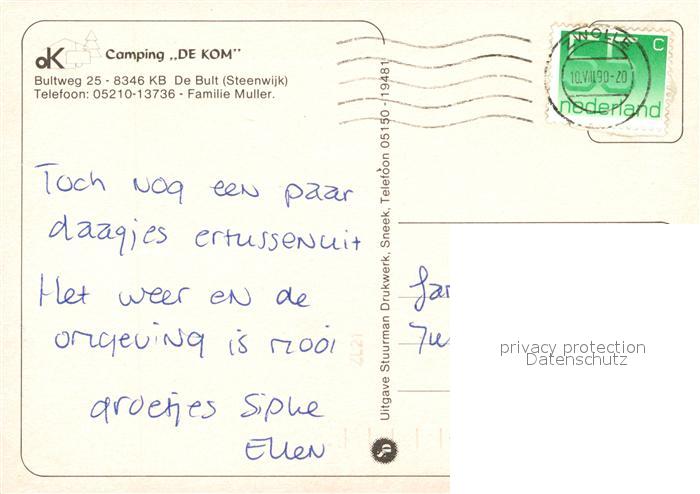 dK Camping „DE KOM"
Bultweg 25 - 8346 KB De Bult (Steenwijk)
Telefoon: 05210-13736 - Familie Muller.
ZWOLLE
10.VIII.90-20
C
nederland
Toch nog een paar
daagjes ertussenuit
Het weer en de
omgeving is mooi
groetjes Sipke
Ellen
Uitgave Stuurman Drukwerk, Sneek, Telefoon 05150 - 19481
Jar
privacy protection
Datenschutz